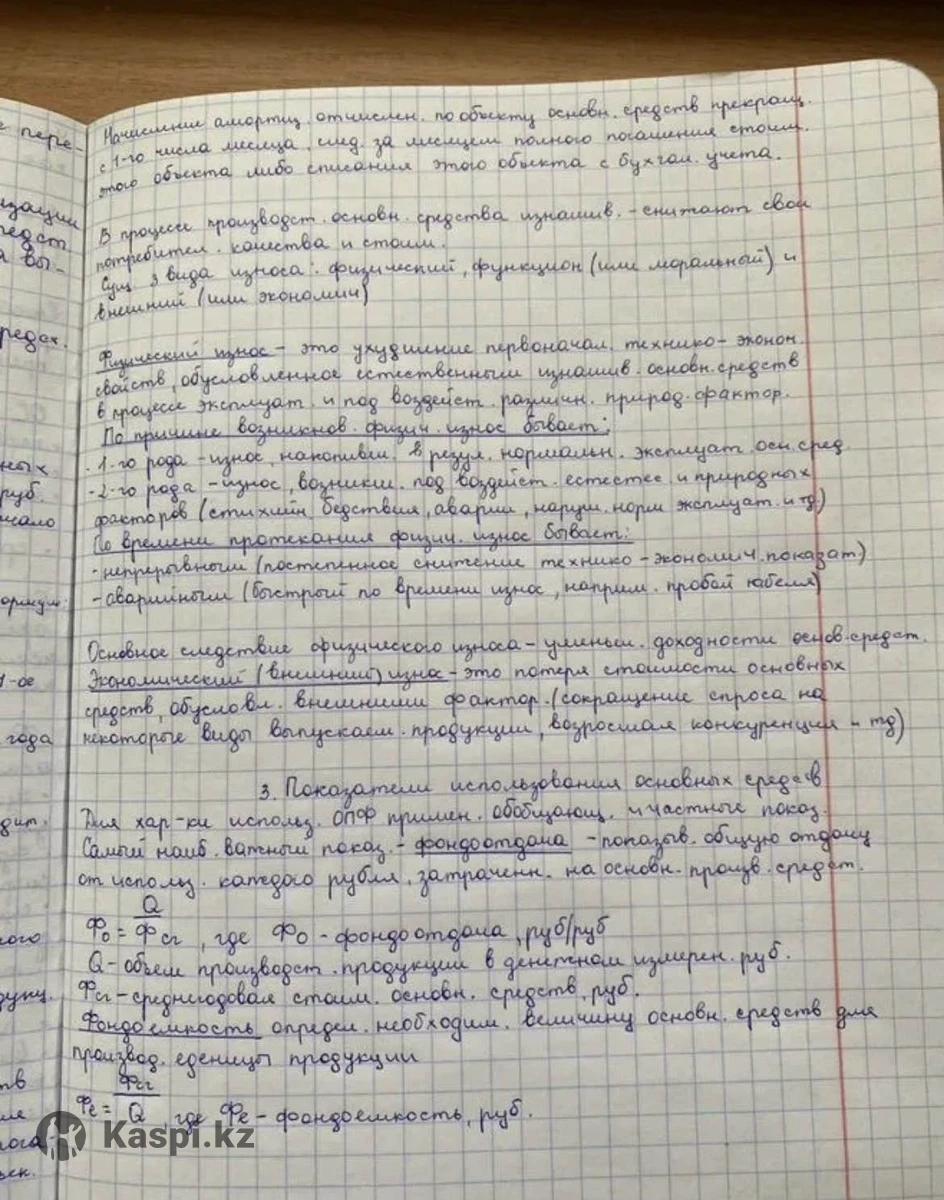 Начисление амортиц. отчислен. по объекту основн. средств прекращ.
с 1-го числа месяца, след. за месяцем полного погашения стоим.
этого объекта либо списания этого объекта с бухгал. учета.
В процессе производст. основн. средства изнашив. - снижают свои
потребител. качества и стоим.
Сущ 3 вида износа: физический, функцион (или моральный) и
внешний (или экономич)
Физический износ - это ухудшение первоначал. технико-эконом.
свойств, обусловленное естественным изнашив. основн. средств
в процессе эксплуат. и под воздейст. различн. природ. фактор.
По причине возникнов. физич. износ бывает:
- 1-го рода - износ, накопивш. в резул. нормальн. эксплуат. осн. сред.
- 2-го рода - износ, возникш. под воздейст. естестве и природных
факторов (стихийн. бедствия, аварии, наруш. норм эксплуат. и тд)
По времени протекания физич. износ бывает:
- непрерывным (постепенное снижение технико-экономич. показат)
- аварийным (быстрый по времени износ, наприм. пробой кабеля)
Основное следствие физического износа - уменьш. доходности основ. средст.
Экономический (внешний) износ - это потеря стоимости основных
средств, обусловл. внешними фактор. (сокращение спроса на
некоторые виды выпускаем. продукции, возросшая конкуренция и тд)
3. Показатели использования основных средств
Для хар-ки использ. ОПФ примен. обобщающ. и частные показ.
Самый наиб. важный показ. - фондоотдача - показыв. общую отдачу
от использ. каждого рубля, затраченн. на основн. произв. средст.
Фо = Q / Фсг, где Фо - фондоотдача, руб/руб
Q - объем производст. продукции в денежном измерен. руб.
Фсг - среднегодовая стоим. основн. средств, руб.
Фондоемкость определ. необходим. величину основн. средств для
производ. еденицы продукции
Фе = Фсг / Q где Фе - фондоемкость, руб.
Kaspi.kz